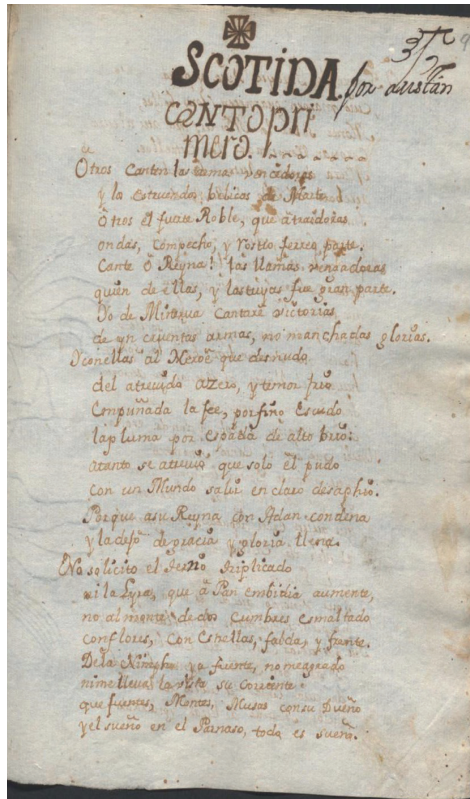 SCOTIDA
por Lustán
CANTO PRI
MERO.
Otros Canten las armas vencedoras
y los estruendos bélicos de Marte
otros el fuerte Roble, que atraidoras
ondas, compecho, y rostro ferreo parte.
Cante ô Reyna! las llamas vengadoras
quien de éllas, y las tuyas fue gran parte.
Yo de Minerva Cantaré victorias
de sangrientas armas, no manchadas glorias.
Y con ellas al Heroe que desnudo
del atrevido azero, y temor frio
Empuñada la fee, porfino Escudo
la pluma por espada de alto brio:
atanto se atrevió que solo él pudo
con un Mundo salir en claro desaphio.
Porque asu Reyna con Adan condena
y la dexò de gracia y gloria llena.
No solicito el triplicado
ni la Lyra, que â Pan embidia aumente,
no al monte de dos Cumbres esmaltado
conflores, con Estrellas, falda, y frente.
Dela Nimpha ya fuente, no meagrado
nimelleva la vista su Corriente
que fuentes, Montes, Musas consu Dueño
y el sueño en el Parnaso, todo es sueño.